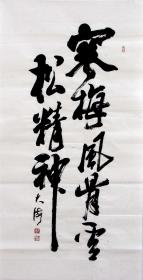 寒梅風骨雪
松精神
大海